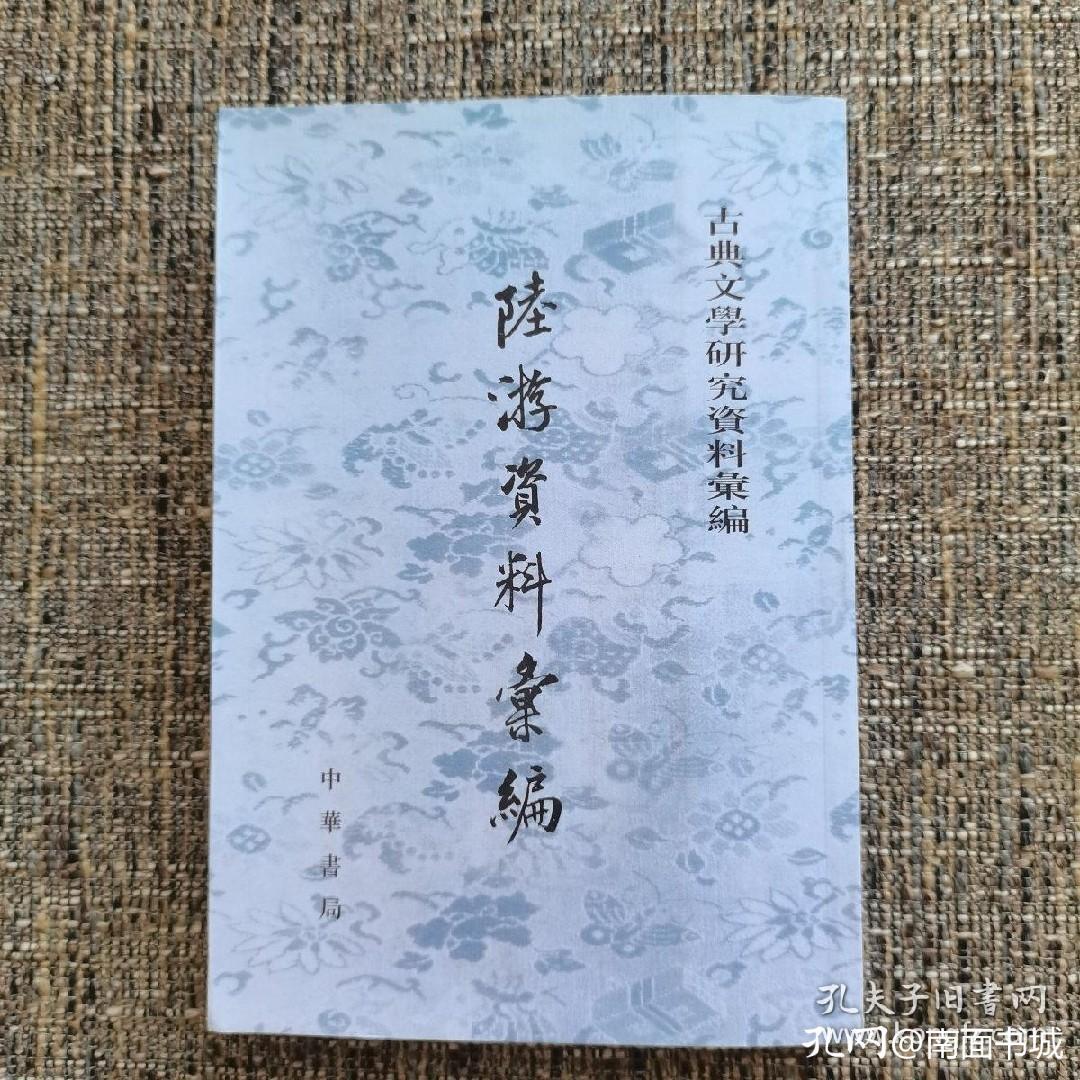 古典文學研究資料彙編
陸游資料彙編
中華書局
孔夫子旧書网
孔网@南面书城